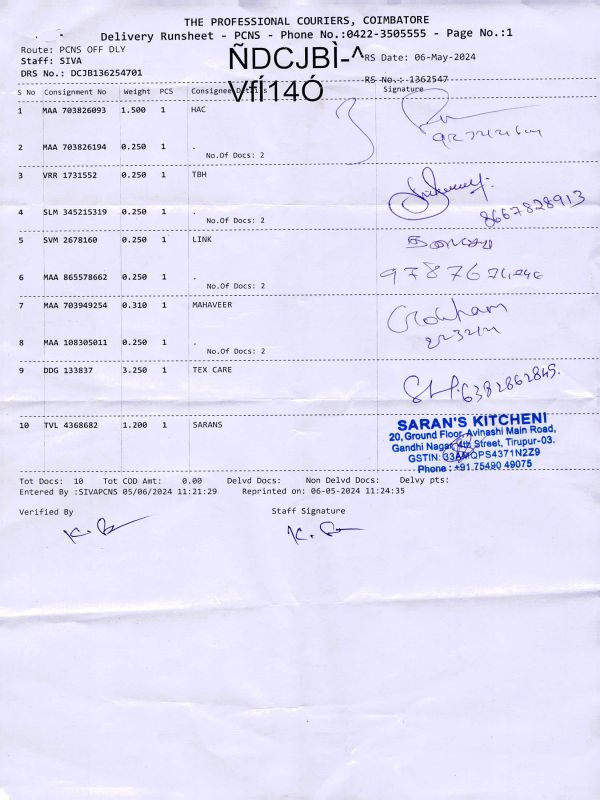 THE PROFESSIONAL COURIERS, COIMBATORE
Delivery Runsheet - PCNS - Phone No.:0422-3505555 - Page No.:1
Route: PCNS OFF DLY
Staff: SIVA
DRS No.: DCJB136254701
ÑDCJBÌ-^
VfÍ14Ó
RS Date: 06-May-2024
RS No.: 1362547
S No Consignment No Weight PCS Consignee Details Signature
1 MAA 703826093 1.500 1 HAC
2 MAA 703826194 0.250 1 .
No.Of Docs: 2
3 VRR 1731552 0.250 1 TBH
8667828913
4 SLM 345215319 0.250 1 .
No.Of Docs: 2
5 SVM 2678160 0.250 1 LINK
6 MAA 865578662 0.250 1 .
No.Of Docs: 2
7 MAA 703949254 0.310 1 MAHAVEER
8 MAA 108305011 0.250 1 .
No.Of Docs: 2
9 DDG 133837 3.250 1 TEX CARE
6382862845.
10 TVL 4368682 1.200 1 SARANS
SARAN'S KITCHENI
20, Ground Floor, Avinashi Main Road,
Gandhi Nagar, 4th Street, Tirupur-03.
GSTIN: 33AMQPS4371N2Z9
Phone : +91.75490 49075
Tot Docs: 10 Tot COD Amt: 0.00 Delvd Docs: Non Delvd Docs: Delvy pts:
Entered By :SIVAPCNS 05/06/2024 11:21:29 Reprinted on: 06-05-2024 11:24:35
Verified By Staff Signature